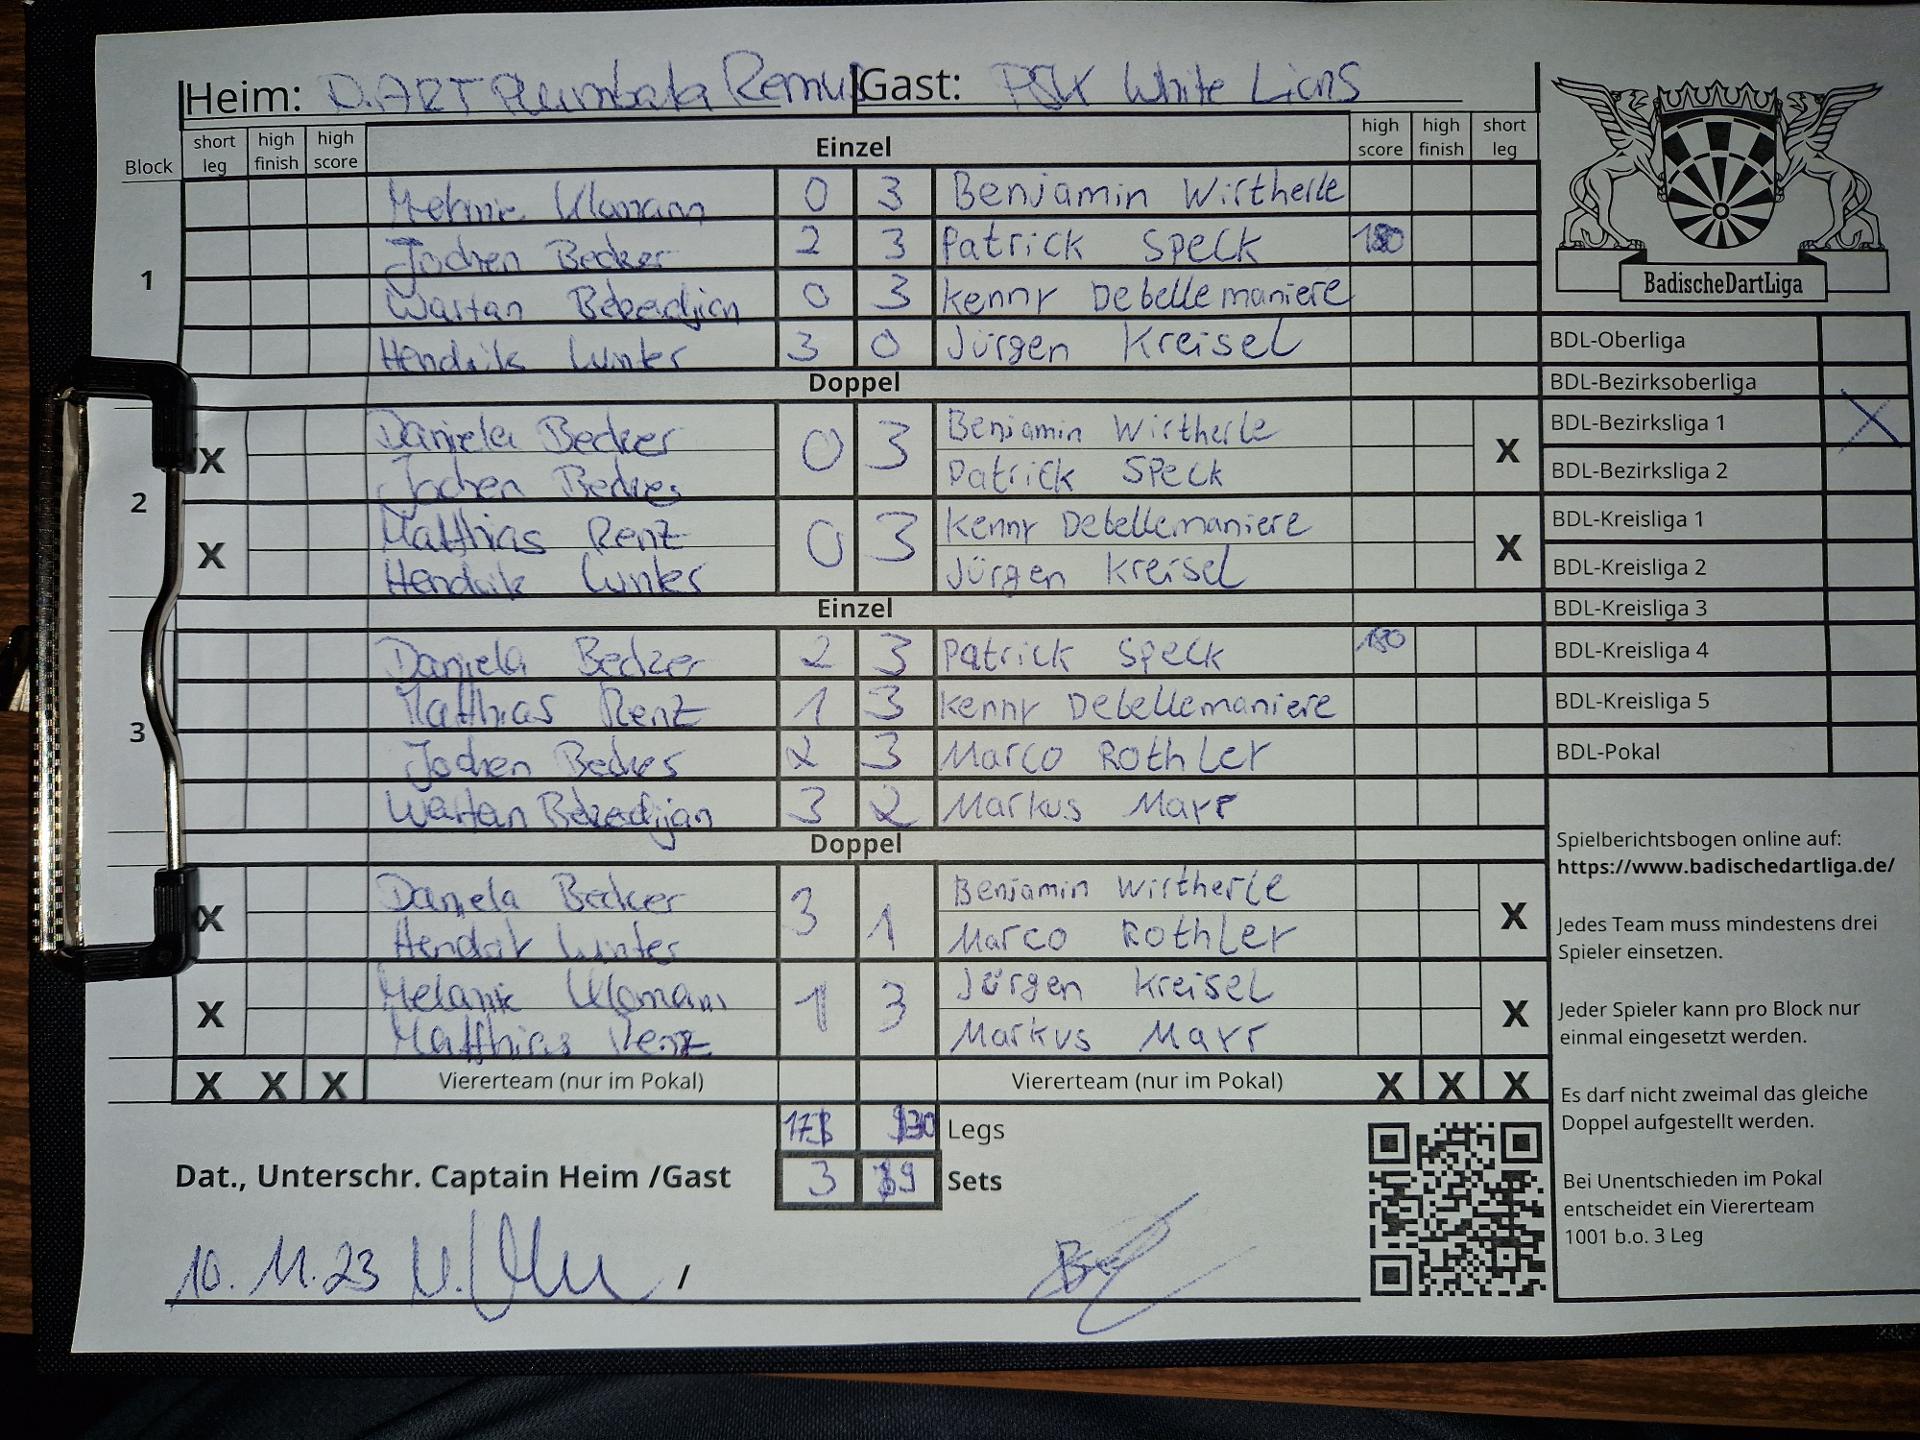 Heim: D.ART Plumbata Remus Gast: PSK White Lions
Block short leg high finish high score Einzel high score high finish short leg
1
Melanie Klomann 0 3 Benjamin Wirtherle
Jochen Becker 2 3 Patrick Speck 180
Wartan Bekedjian 0 3 Kenny Debellemaniere
Hendrik Winter 3 0 Jürgen Kreisel
Doppel
2
X Daniela Becker 0 3 Benjamin Wirtherle X
Jochen Becker Patrick Speck
X Matthias Renz 0 3 Kenny Debellemaniere X
Hendrik Winter Jürgen Kreisel
Einzel
3
Daniela Becker 2 3 Patrick Speck 180
Matthias Renz 1 3 Kenny Debellemaniere
Jochen Becker 2 3 Marco Rothler
Wartan Bekedjian 3 2 Markus Marr
Doppel
X Daniela Becker 3 1 Benjamin Wirtherle X
Hendrik Winter Marco Rothler
X Melanie Klomann 1 3 Jürgen Kreisel X
Matthias Renz Markus Marr
X X X Viererteam (nur im Pokal) Viererteam (nur im Pokal) X X X
17 Legs
Dat., Unterschr. Captain Heim /Gast 3 9 Sets
10.11.23 /
BadischeDartLiga
BDL-Oberliga
BDL-Bezirksoberliga
BDL-Bezirksliga 1 X
BDL-Bezirksliga 2
BDL-Kreisliga 1
BDL-Kreisliga 2
BDL-Kreisliga 3
BDL-Kreisliga 4
BDL-Kreisliga 5
BDL-Pokal
Spielberichtsbogen online auf:
https://www.badischedartliga.de/
Jedes Team muss mindestens drei
Spieler einsetzen.
Jeder Spieler kann pro Block nur
einmal eingesetzt werden.
Es darf nicht zweimal das gleiche
Doppel aufgestellt werden.
Bei Unentschieden im Pokal
entscheidet ein Viererteam
1001 b.o. 3 Leg